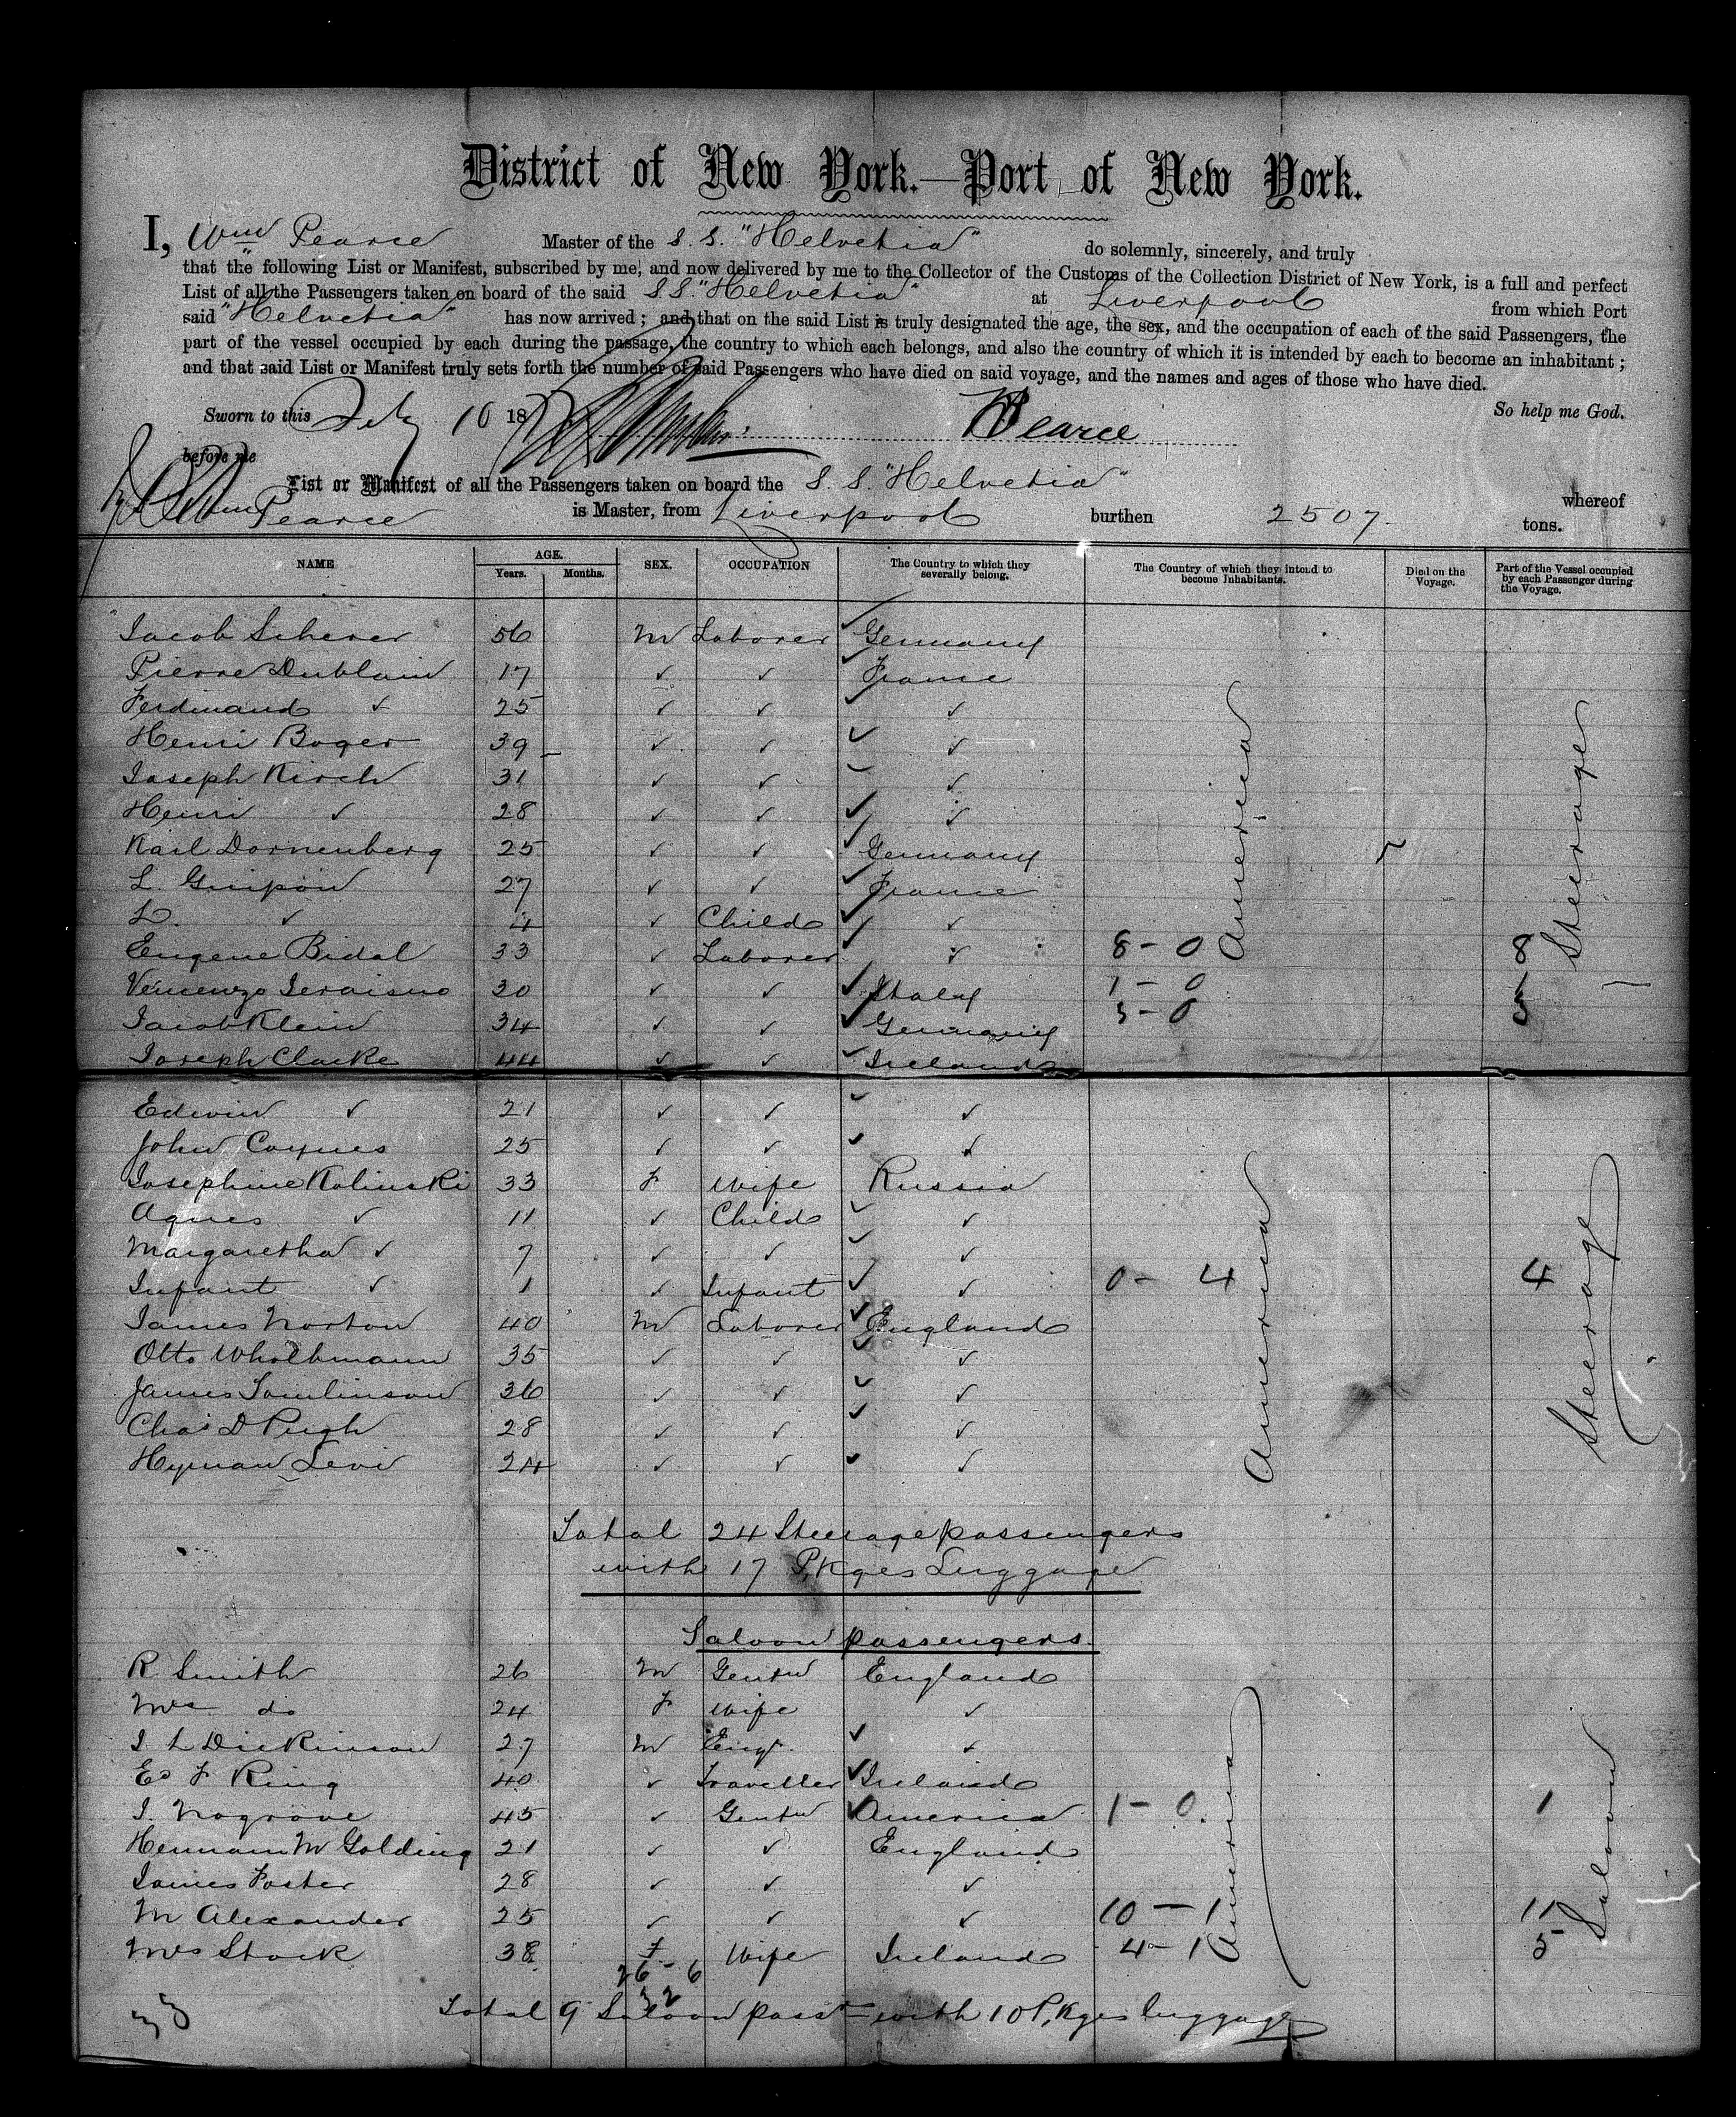 District of New York.—Port of New York.
I, Wm Pearce Master of the S. S. "Helvetia" do solemnly, sincerely, and truly
that the following List or Manifest, subscribed by me, and now delivered by me to the Collector of the Customs of the Collection District of New York, is a full and perfect
List of all the Passengers taken on board of the said S S. "Helvetia" at Liverpool from which Port
said "Helvetia" has now arrived; and that on the said List is truly designated the age, the sex, and the occupation of each of the said Passengers, the
part of the vessel occupied by each during the passage, the country to which each belongs, and also the country of which it is intended by each to become an inhabitant;
and that said List or Manifest truly sets forth the number of said Passengers who have died on said voyage, and the names and ages of those who have died.
So help me God.
Sworn to this 10 18 Pearce
before me
List or Manifest of all the Passengers taken on board the S. S. "Helvetia" whereof
Wm Pearce is Master, from Liverpool burthen 2507. tons.
NAME AGE. Years. Months. SEX. OCCUPATION The Country to which they severally belong. The Country of which they intend to become Inhabitants. Died on the Voyage. Part of the Vessel occupied by each Passenger during the Voyage.
Jacob Scherer 56 M Laborer ✓ Germany
Pierre Dublain 17 ✓ ✓ ✓ France
Ferdinand ✓ 25 ✓ ✓ ✓ ✓
Henri Boger 39 ✓ ✓ ✓ ✓
Joseph Kirch 31 ✓ ✓ ✓ ✓
Henri ✓ 28 ✓ ✓ ✓ ✓
Karl Dornenberg 25 ✓ ✓ ✓ Germany
L. 27 ✓ ✓ ✓ France
L. ✓ 4 ✓ Child ✓ ✓
Eugene Bidal 33 ✓ Laborer ✓ ✓ 8-0 America 8 Steerage
Vincenzo 30 ✓ ✓ ✓ Italy 1-0 1
Jacob Klein 34 ✓ ✓ ✓ Germany 3-0 3
Joseph Clarke 44 ✓ ✓ ✓ Ireland
Edwin ✓ 21 ✓ ✓ ✓ ✓
John Coynes 25 ✓ ✓ ✓ ✓
Josephine Kalinski 33 F Wife Russia
Agnes ✓ 11 ✓ Child ✓ ✓
Margaretha ✓ 7 ✓ ✓ ✓ ✓
Infant ✓ 1 ✓ Infant ✓ ✓ 0-4 America 4 Steerage
James Norton 40 M Laborer ✓ England
Otto Wholhmann 35 ✓ ✓ ✓ ✓
James Tomlinson 36 ✓ ✓ ✓ ✓
Chas D Pugh 28 ✓ ✓ ✓ ✓
Hyman Levi 24 ✓ ✓ ✓ ✓
Total 24 Steerage passengers
with 17 Pkges Luggage
Saloon passengers
R Smith 26 M Gentn England
Mrs do 24 F Wife ✓
J L Dickinson 27 M Engr. ✓ ✓
Ed F King 40 ✓ Traveller ✓ Ireland
J. Nogrove 45 ✓ Gentn ✓ America 1-0 America 1 Saloon
Hermann M Golding 21 ✓ ✓ England
James Foster 28 ✓ ✓ ✓
M Alexander 25 ✓ ✓ ✓ 10-1 11
Mrs Stock 38 F Wife Ireland 4-1 5
26-6
32
33 Total 9 Saloon passrs with 10 Pkges luggage